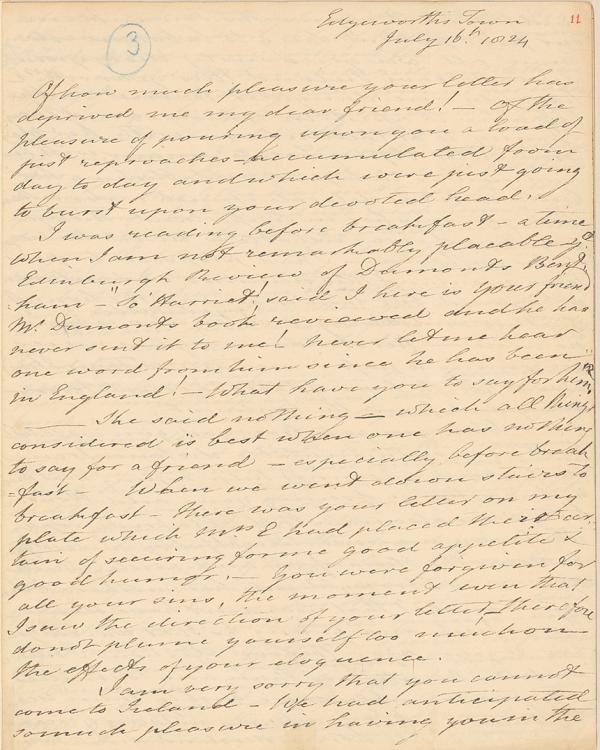 Edgeworth's Town 11
3 July 16th. 1824
Of how much pleasure your letter has
deprived me my dear friend! — Of the
pleasure of pouring upon you a load of
just reproaches accumulated from
day to day and which were just going
to burst upon your devoted head.
I was reading before breakfast — a time
when I am not remarkably placable — ye.
Edinburgh Review of Dumont's Bent-
ham — "So Harriet! said I here is your friend
Mr. Dumonts book reviewed and he has
never sent it to me! Never let me hear
one word from him since he has been
in England! — What have you to say for him"?
— She said nothing — which all things
considered is best when one has nothing
to say for a friend — especially before break
-fast — When we went down stairs to
breakfast — there was your letter on my
plate which Mrs E had placed there cer-
tain of securing for me good appetite &
good humor. — You were forgiven for
all your sins, the moment even that
I saw the direction of your letter, therefore
do not plume yourself too much on
the effects of your eloquence.
I am very sorry that you cannot
come to Ireland — We had anticipated
so much pleasure in having you in the